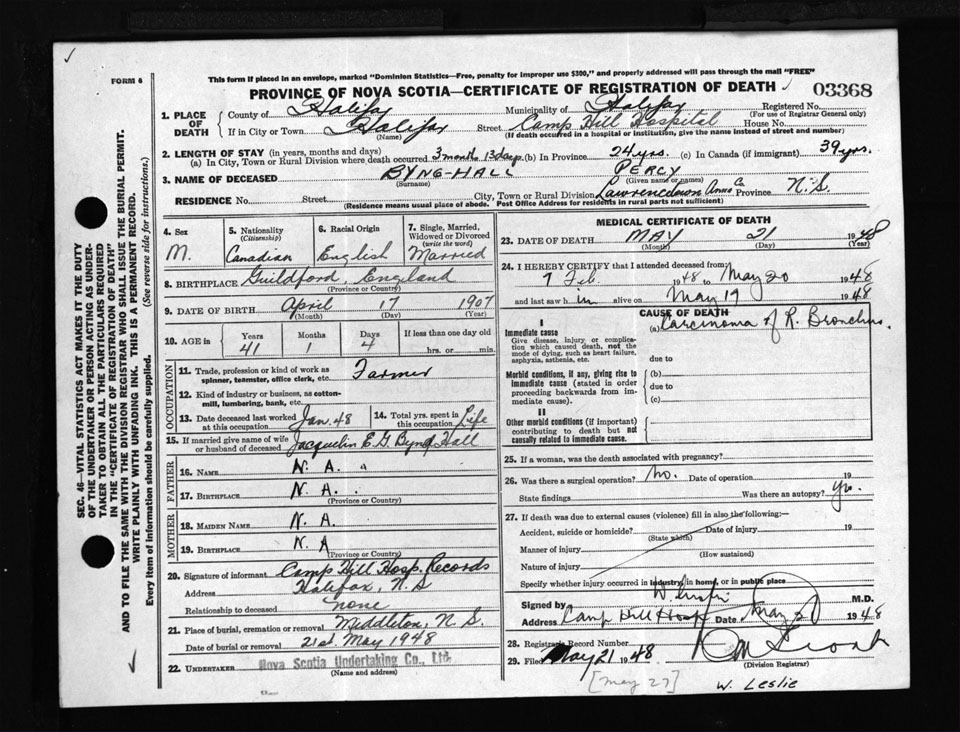 ✓
FORM 6
This form if placed in an envelope, marked "Dominion Statistics—Free, penalty for improper use $300," and properly addressed will pass through the mail "FREE"
PROVINCE OF NOVA SCOTIA—CERTIFICATE OF REGISTRATION OF DEATH
03368
1. PLACE OF DEATH
County of Halifax Municipality of Halifax Registered No.
(For use of Registrar General only)
If in City or Town Halifax Street Camp Hill Hospital House No.
(Name) (If death occurred in a hospital or institution, give the name instead of street and number)
2. LENGTH OF STAY (in years, months and days)
(a) In City, Town or Rural Division where death occurred 3 month 13 days (b) In Province 24 yrs. (c) In Canada (if immigrant) 39 yrs.
3. NAME OF DECEASED BYNG-HALL PERCY
(Surname) (Given name or names)
RESIDENCE No. Street City, Town or Rural Division Lawrencetown Anna Co Province N.S.
(Residence means usual place of abode. Post Office Address for residents in rural parts not sufficient)
4. Sex
M.
5. Nationality
(Citizenship)
Canadian
6. Racial Origin
English
7. Single, Married, Widowed or Divorced
(write the word)
Married
8. BIRTHPLACE Guildford, England
(Province or Country)
9. DATE OF BIRTH April 17 1907
(Month) (Day) (Year)
10. AGE in Years Months Days If less than one day old
41 1 4 hrs. or min.
OCCUPATION
11. Trade, profession or kind of work as spinner, teamster, office clerk, etc. Farmer
12. Kind of industry or business, as cotton-mill, lumbering, bank, etc.
13. Date deceased last worked at this occupation Jan. 48
14. Total yrs. spent in this occupation Life
15. If married give name of wife or husband of deceased Jacquelin E. G. Byng Hall
FATHER
16. NAME N. A.
17. BIRTHPLACE N. A.
(Province or Country)
MOTHER
18. MAIDEN NAME N. A.
19. BIRTHPLACE N. A
(Province or Country)
20. Signature of informant Camp Hill Hosp. Records
Address Halifax, N. S
Relationship to deceased none
21. Place of burial, cremation or removal Middleton, N. S.
Date of burial or removal 21st May 1948
22. UNDERTAKER Nova Scotia Undertaking Co., Ltd.
(Name and address)
MEDICAL CERTIFICATE OF DEATH
23. DATE OF DEATH MAY 21 1948
(Month) (Day) (Year)
24. I HEREBY CERTIFY that I attended deceased from
7 Feb. 1948 May 20 1948
and last saw him alive on May 19 1948
CAUSE OF DEATH
I
Immediate cause
Give disease, injury or complication which caused death, not the mode of dying, such as heart failure, asphyxia, asthenia, etc.
(a) Carcinoma of R. Bronchus.
due to
Morbid conditions, if any, giving rise to immediate cause (stated in order proceeding backwards from immediate cause).
(b)
due to
(c)
II
Other morbid conditions (if important) contributing to death but not causally related to immediate cause.
25. If a woman, was the death associated with pregnancy?
26. Was there a surgical operation? No. Date of operation 19
State findings Was there an autopsy? Yes.
27. If death was due to external causes (violence) fill in also the following:—
Accident, suicide or homicide? Date of injury 19
(State which)
Manner of injury
(How sustained)
Nature of injury
Specify whether injury occurred in industry, in home, or in public place
Signed by M.D.
Address Camp Hill Hosp Date May 20 1948
28. Registrar's Record Number
29. Filed May 21 1948
(Division Registrar)
[May 27]
W. Leslie
SEC. 46—VITAL STATISTICS ACT MAKES IT THE DUTY
OF THE UNDERTAKER OR PERSON ACTING AS UNDER-
TAKER TO OBTAIN ALL THE PARTICULARS REQUIRED
IN THE "CERTIFICATE OF REGISTRATION OF DEATH"
AND TO FILE THE SAME WITH THE DIVISION REGISTRAR WHO SHALL ISSUE THE BURIAL PERMIT.
WRITE PLAINLY WITH UNFADING INK. THIS IS A PERMANENT RECORD.
Every item of information should be carefully supplied. (See reverse side for instructions.)
✓